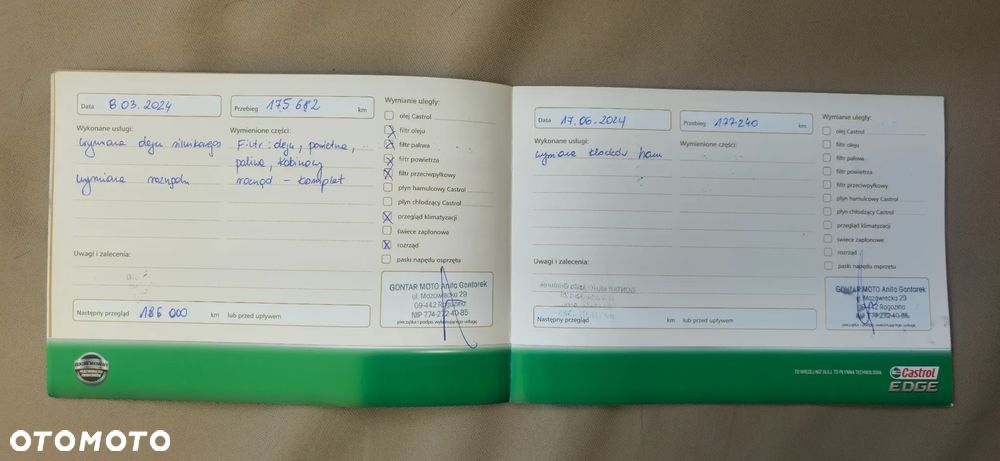 Data 8 03. 2024
Przebieg 175 682 km
Wykonane usługi:
wymiana oleju silnikowego
wymiana rozrządu
Wymienione części:
Filtr: oleju, powietrza,
paliwa, kabinowy
rozrząd - komplet
Wymianie uległy:
olej Castrol
filtr oleju
filtr paliwa
filtr powietrza
filtr przeciwpyłkowy
płyn hamulcowy Castrol
płyn chłodzący Castrol
przegląd klimatyzacji
świece zapłonowe
rozrząd
paski napędu osprzętu
Uwagi i zalecenia:
GONTAR MOTO Anita Gontarek
ul. Mazowiecka 29
09-442 Rogozino
NIP 774-272-40-85
pieczątka i podpis wykonującego usługę
Następny przegląd 186 000 km lub przed upływem
Data 17.06.2024
Przebieg 177240 km
Wykonane usługi:
wymiana klocków ham
Wymienione części:
Wymianie uległy:
olej Castrol
filtr oleju
filtr paliwa
filtr powietrza
filtr przeciwpyłkowy
płyn hamulcowy Castrol
płyn chłodzący Castrol
przegląd klimatyzacji
świece zapłonowe
rozrząd
paski napędu osprzętu
Uwagi i zalecenia:
GONTAR MOTO Anita Gontarek
ul. Mazowiecka 29
09-442 Rogozino
NIP 774-272-40-85
pieczątka i podpis wykonującego usługę
Następny przegląd km lub przed upływem
TO WIĘCEJ NIŻ OLEJ. TO PŁYNNA TECHNOLOGIA.
Castrol
EDGE
OTOMOTO